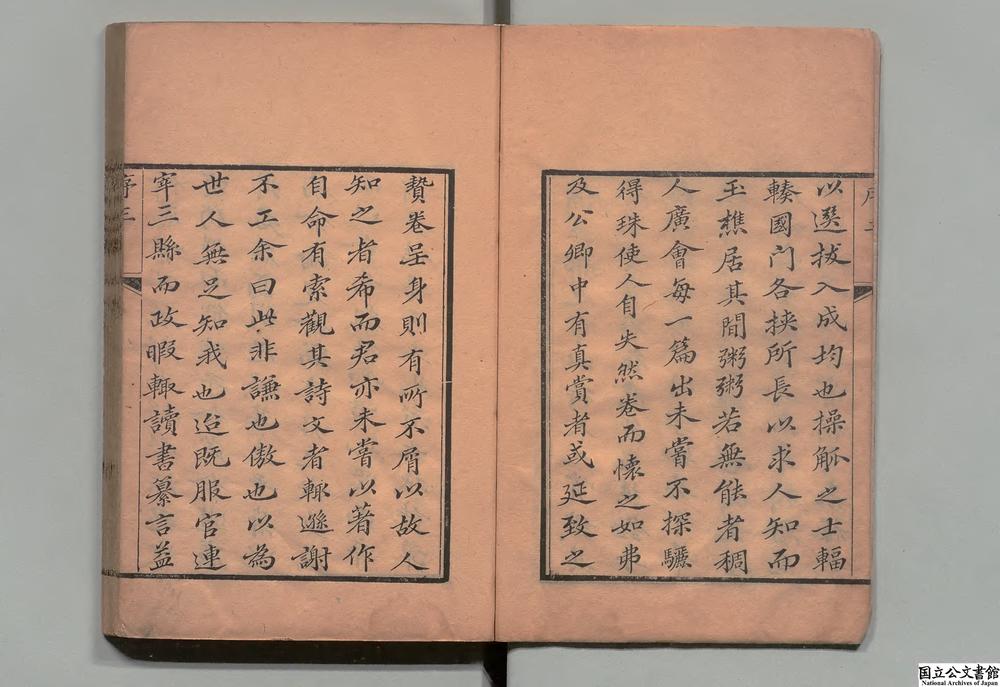 以選拔入成均也操觚之士輻
輳國門各挾所長以求人知而
玉樵居其間粥粥若無能者稠
人廣會每一篇出未嘗不探驪
得珠使人自失然卷而懷之如弗
及公卿中有真賞者或延致之
贄卷呈身則有所不屑以故人
知之者希而君亦未嘗以著作
自命有索觀其詩文者輒遜謝
不工余曰此非謙也傲也以為
世人無足知我也迨既服官連
宰三縣而政暇輒讀書纂言益
序三
国立公文書館
National Archives of Japan